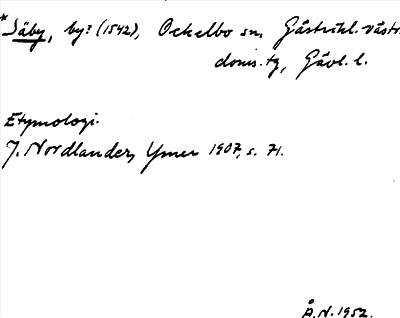 *Säby, by? (1542), Ockelbo sn, Gästrikl. västr.
doms. tg, Gävl. l.
Etymologi.
J. Nordlander, Ymer 1907, s. 71.
Å.N. 1952.